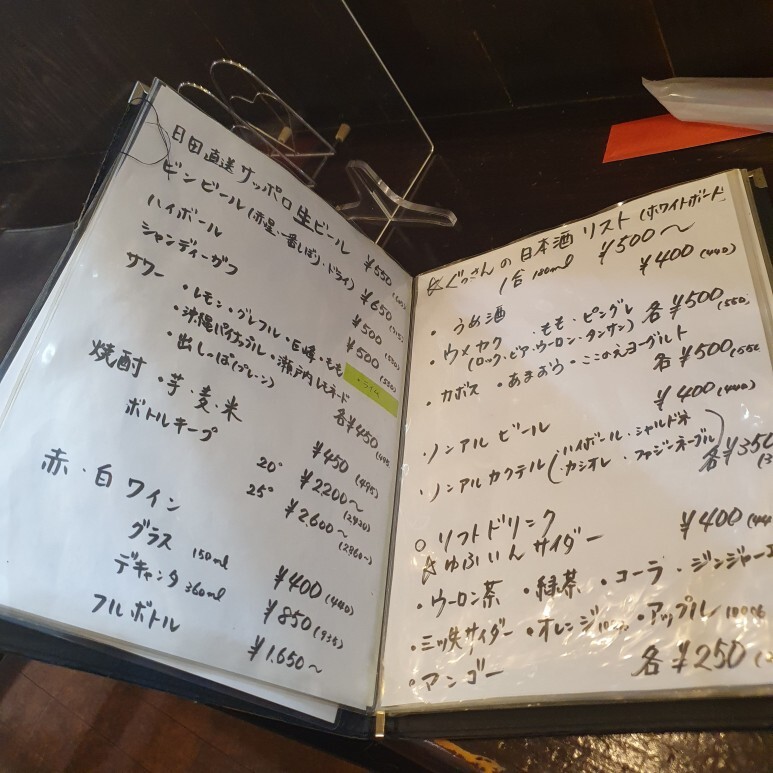 日田直送 サッポロ生ビール ¥550
ビンビール (赤星・一番しぼり・ドライ) ¥650 (715)
ハイボール ¥500 (550)
シャンディーガフ ¥500 (550)
サワー ・レモン・グレフル・巨峰・もも ・ライム
・沖縄パイナップル・瀬戸内レモネード
・出しっぱ(プレーン) 各¥450 (495)
焼酎・芋・麦・米 ¥450 (495)
ボトルキープ 20° ¥2200〜 (2420)
25° ¥2600〜 (2860〜)
赤・白ワイン
グラス 150ml ¥400 (440)
デキャンタ 360ml ¥850 (935)
フルボトル ¥1.650〜
☆ぐっさんの日本酒リスト (ホワイトボード
1合 180ml ¥500〜
・うめ酒 ¥400 (440)
・ウメカク ・もも・ピングレ 各¥500 (550)
(ロック・ビア・ウーロン・タンサン)
・カボス ・あまおう・ここのえヨーグルト 各¥500 (550
・ノンアルビール ¥400 (440)
・ノンアルカクテル (ハイボール・シャルドネ
・カシオレ・ファジーネーブル) 各¥350
○ソフトドリンク
☆ゆふいんサイダー ¥400 (44
・ウーロン茶 ・緑茶 ・コーラ ・ジンジャーエ
・三ツ矢サイダー ・オレンジ100% ・アップル100%
・マンゴー 各¥250